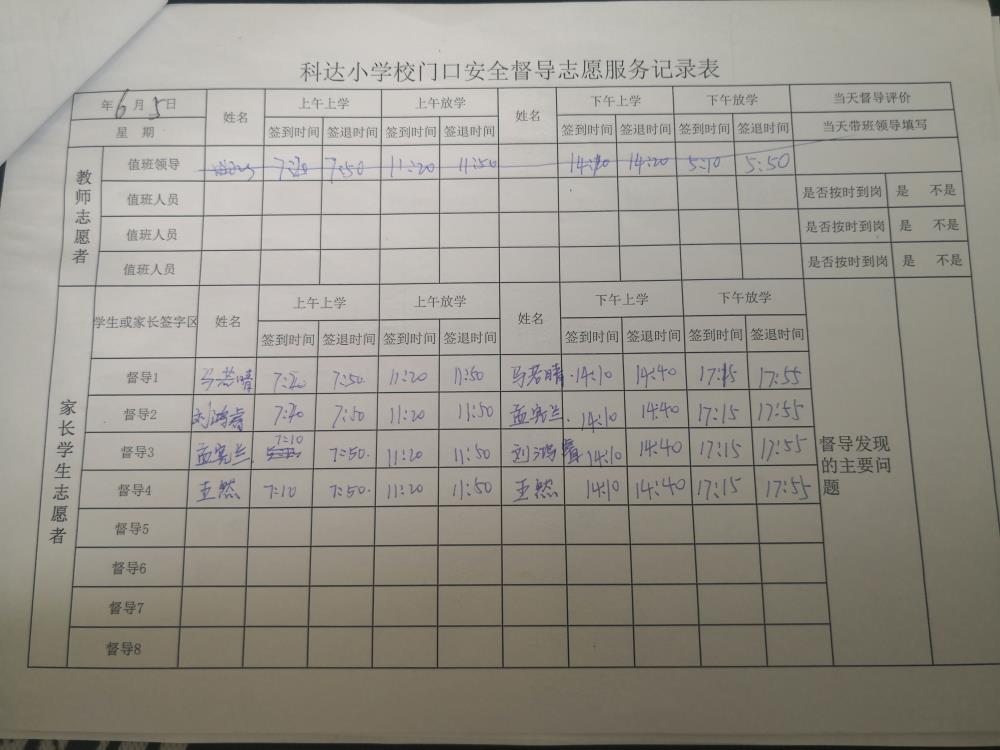 科达小学校门口安全督导志愿服务记录表
年6月5日 姓名 上午上学 上午放学 姓名 下午上学 下午放学 当天督导评价
星 期 签到时间 签退时间 签到时间 签退时间 签到时间 签退时间 签到时间 签退时间 当天带班领导填写
教师志愿者
值班领导 7:50 11:20 11:50 14:20 5:10 5:50
值班人员 是否按时到岗 是 不是
值班人员 是否按时到岗 是 不是
值班人员 是否按时到岗 是 不是
家长学生志愿者
学生或家长签字区 姓名 上午上学 上午放学 姓名 下午上学 下午放学
签到时间 签退时间 签到时间 签退时间 签到时间 签退时间 签到时间 签退时间
督导1 马若晴 7:50 11:20 11:50 马若晴 14:10 14:40 17:15 17:55
督导2 刘鸿睿 7:50 11:20 11:50 孟宪兰 14:10 14:40 17:15 17:55
督导3 孟宪兰 7:10 7:50 11:20 11:50 刘鸿睿 14:10 14:40 17:15 17:55
督导4 王然 7:10 7:50 11:20 11:50 王然 14:10 14:40 17:15 17:55
督导5
督导6
督导7
督导8
督导发现的主要问题